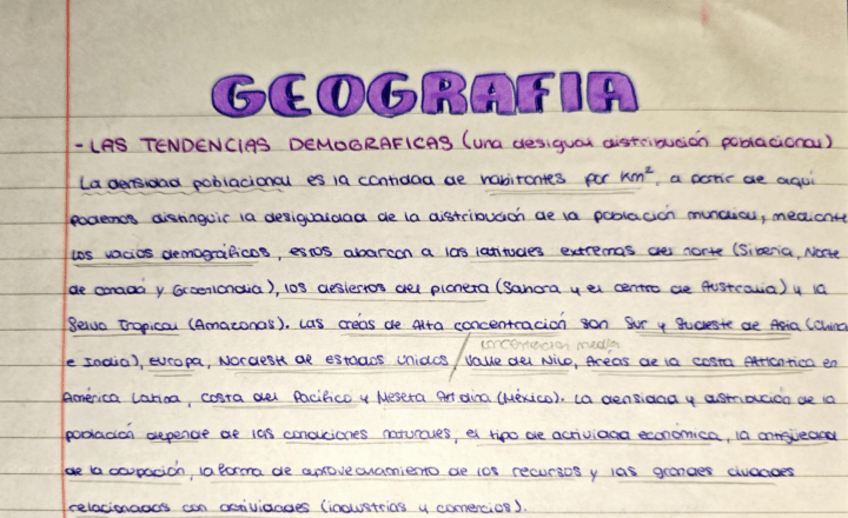 GEOGRAFIA
- LAS TENDENCIAS DEMOGRAFICAS (una desigual distribución poblacional)
La densidad poblacional es la cantidad de habitantes por Km², a partir de aquí
podemos distinguir la desigualdad de la distribución de la población mundial, mediante
los vacios demográficos, estos abarcan a las latitudes extremas del norte (Siberia, Norte
de canadá y Groenlandia), los desiertos del planeta (Sahara y el centro de Australia) y la
Selva Tropical (Amazonas). Las areas de Alta concentración son Sur y Sudeste de Asia (China
concentracion media
e India), Europa, Noroeste de estados unidos / Valle del Nilo, Áreas de la costa Atlantica en
América Latina, costa del Pacífico y Meseta Andina (México). La densidad y distribución de la
población depende de las condiciones naturales, el tipo de actividad económica, la antigüedad
de la ocupación, la forma de aprovechamiento de los recursos y las grandes ciudades
relacionadas con actividades (industrias y comercios).